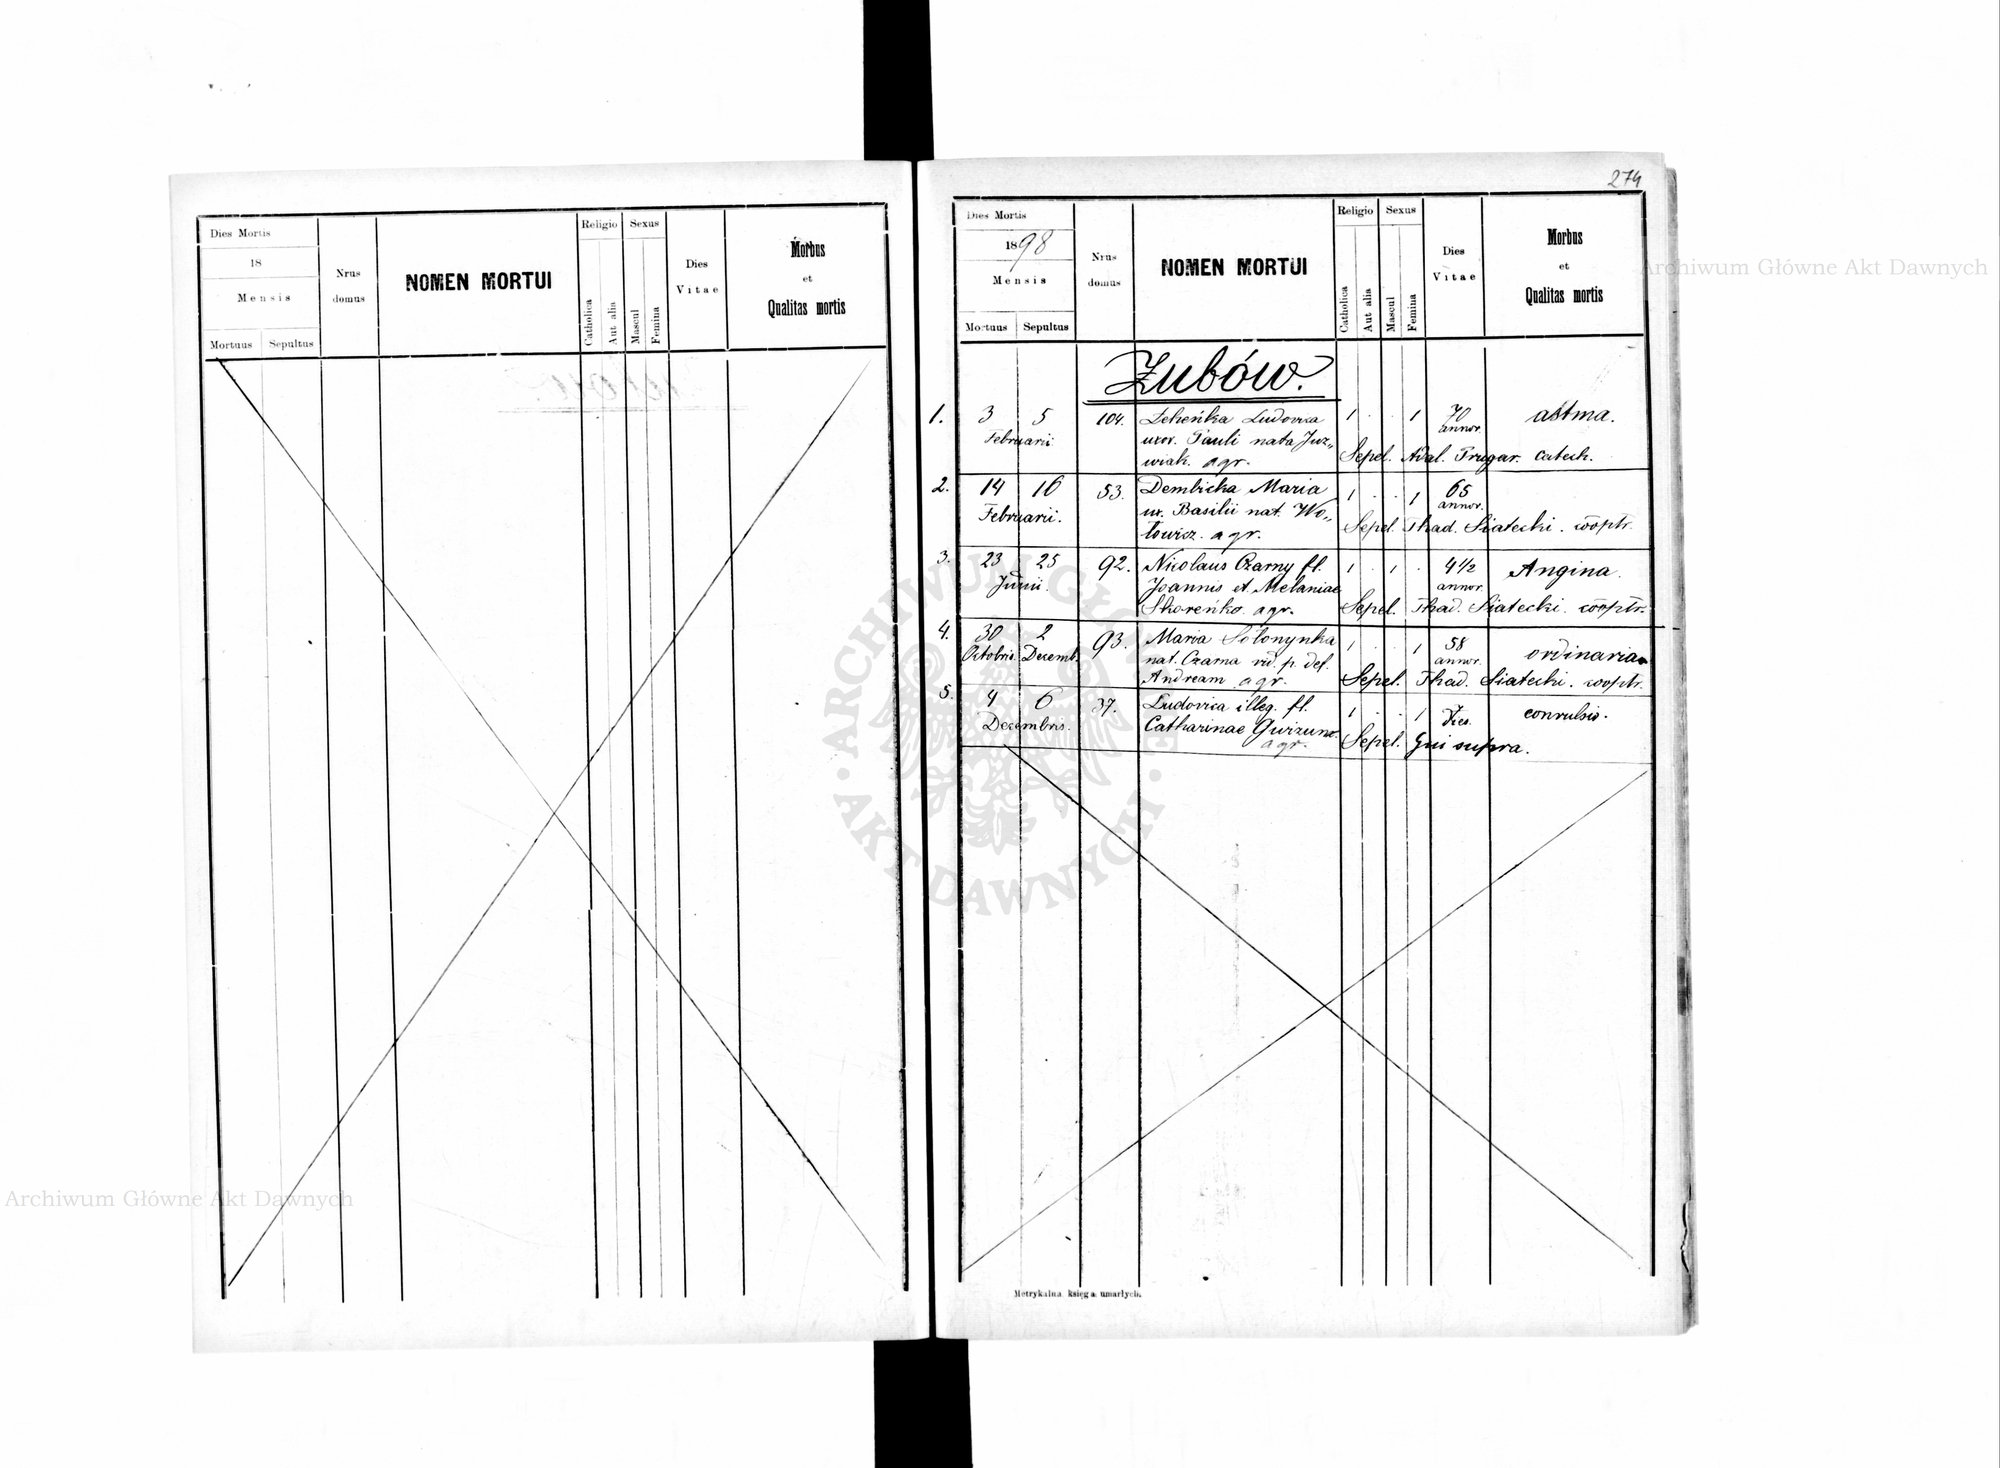 Dies Mortis
18
Mensis
Mortuus Sepultus
Nrus domus
NOMEN MORTUI
Religio
Catholica
Aut alia
Sexus
Mascul
Femina
Dies Vitae
Morbus
et
Qualitas mortis
274
Dies Mortis
1898
Mensis
Mortuus Sepultus
Nrus domus
NOMEN MORTUI
Religio
Catholica
Aut alia
Sexus
Mascul
Femina
Dies Vitae
Morbus
et
Qualitas mortis
Zubów.
1. 3 5 104. Ludovica 1 . . 1 70 astma.
Februarii uxor. Pauli nata Juz„ annor.
wiak. agr. Sepel. Adal. Frugar. catech.
2. 14 16 53. Dembicka Maria 1 . . 1 65
Februarii. ux. Basilii nat. Wo„ annor.
łowicz. agr. Sepel. Thad. Siatecki. cooptr.
3. 23 25 92. Nicolaus Czarny fl. 1 . 1 . 4½ Angina.
Junii. Joannis et Melaniae annor.
Skoreńko. agr. Sepel. Thad. Siatecki. cooptr.
4. 30 2 93. Maria Sołonynka 1 . . 1 58 ordinaria
Octobris. Decemb. nat. Czarna vid. p. def. annor.
Andream agr. Sepel. Thad. Siatecki. cooptr.
5. 4 6 37. Ludovica illeg. fl. 1 . . 1 convulsio.
Decembris. Catharinae
agr. Sepel. Qui supra.
Metrykalna księga umarłych.
Archiwum Główne Akt Dawnych
Archiwum Główne Akt Dawnych
ARCHIWUM GŁÓWNE
AKT DAWNYCH